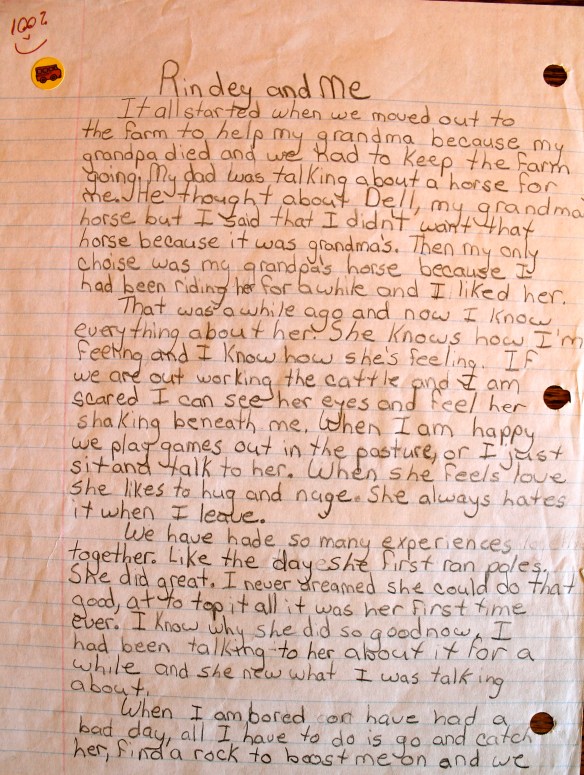 100%
Rindey and Me
It all started when we moved out to
the farm to help my grandma because my
grandpa died and we had to keep the farm
going. My dad was talking about a horse for
me. He thought about Dell, my grandma
horse but I said that I didn't want that
horse because it was grandma's. Then my only
choise was my grandpa's horse because I
had been riding her for awhile and I liked her.
That was a while ago and now I know
everything about her. She knows how I'm
feeling and I know how she's feeling. If
we are out working the cattle and I am
scared I can see her eyes and feel her
shaking beneath me. When I am happy
we play games out in the pasture, or I just
sit and talk to her. When she feels love
she likes to hug and nuge. She always hates
it when I leave.
We have hade so many experiences
together. Like the day she first ran poles.
She did great. I never dreamed she could do that
good, at to top it all it was her first time
ever. I know why she did so good now, I
had been talking to her about it for a
while and she new what I was talking
about.
When I am bored or have had a
bad day, all I have to do is go and catch
her, find a rock to boost me on and we